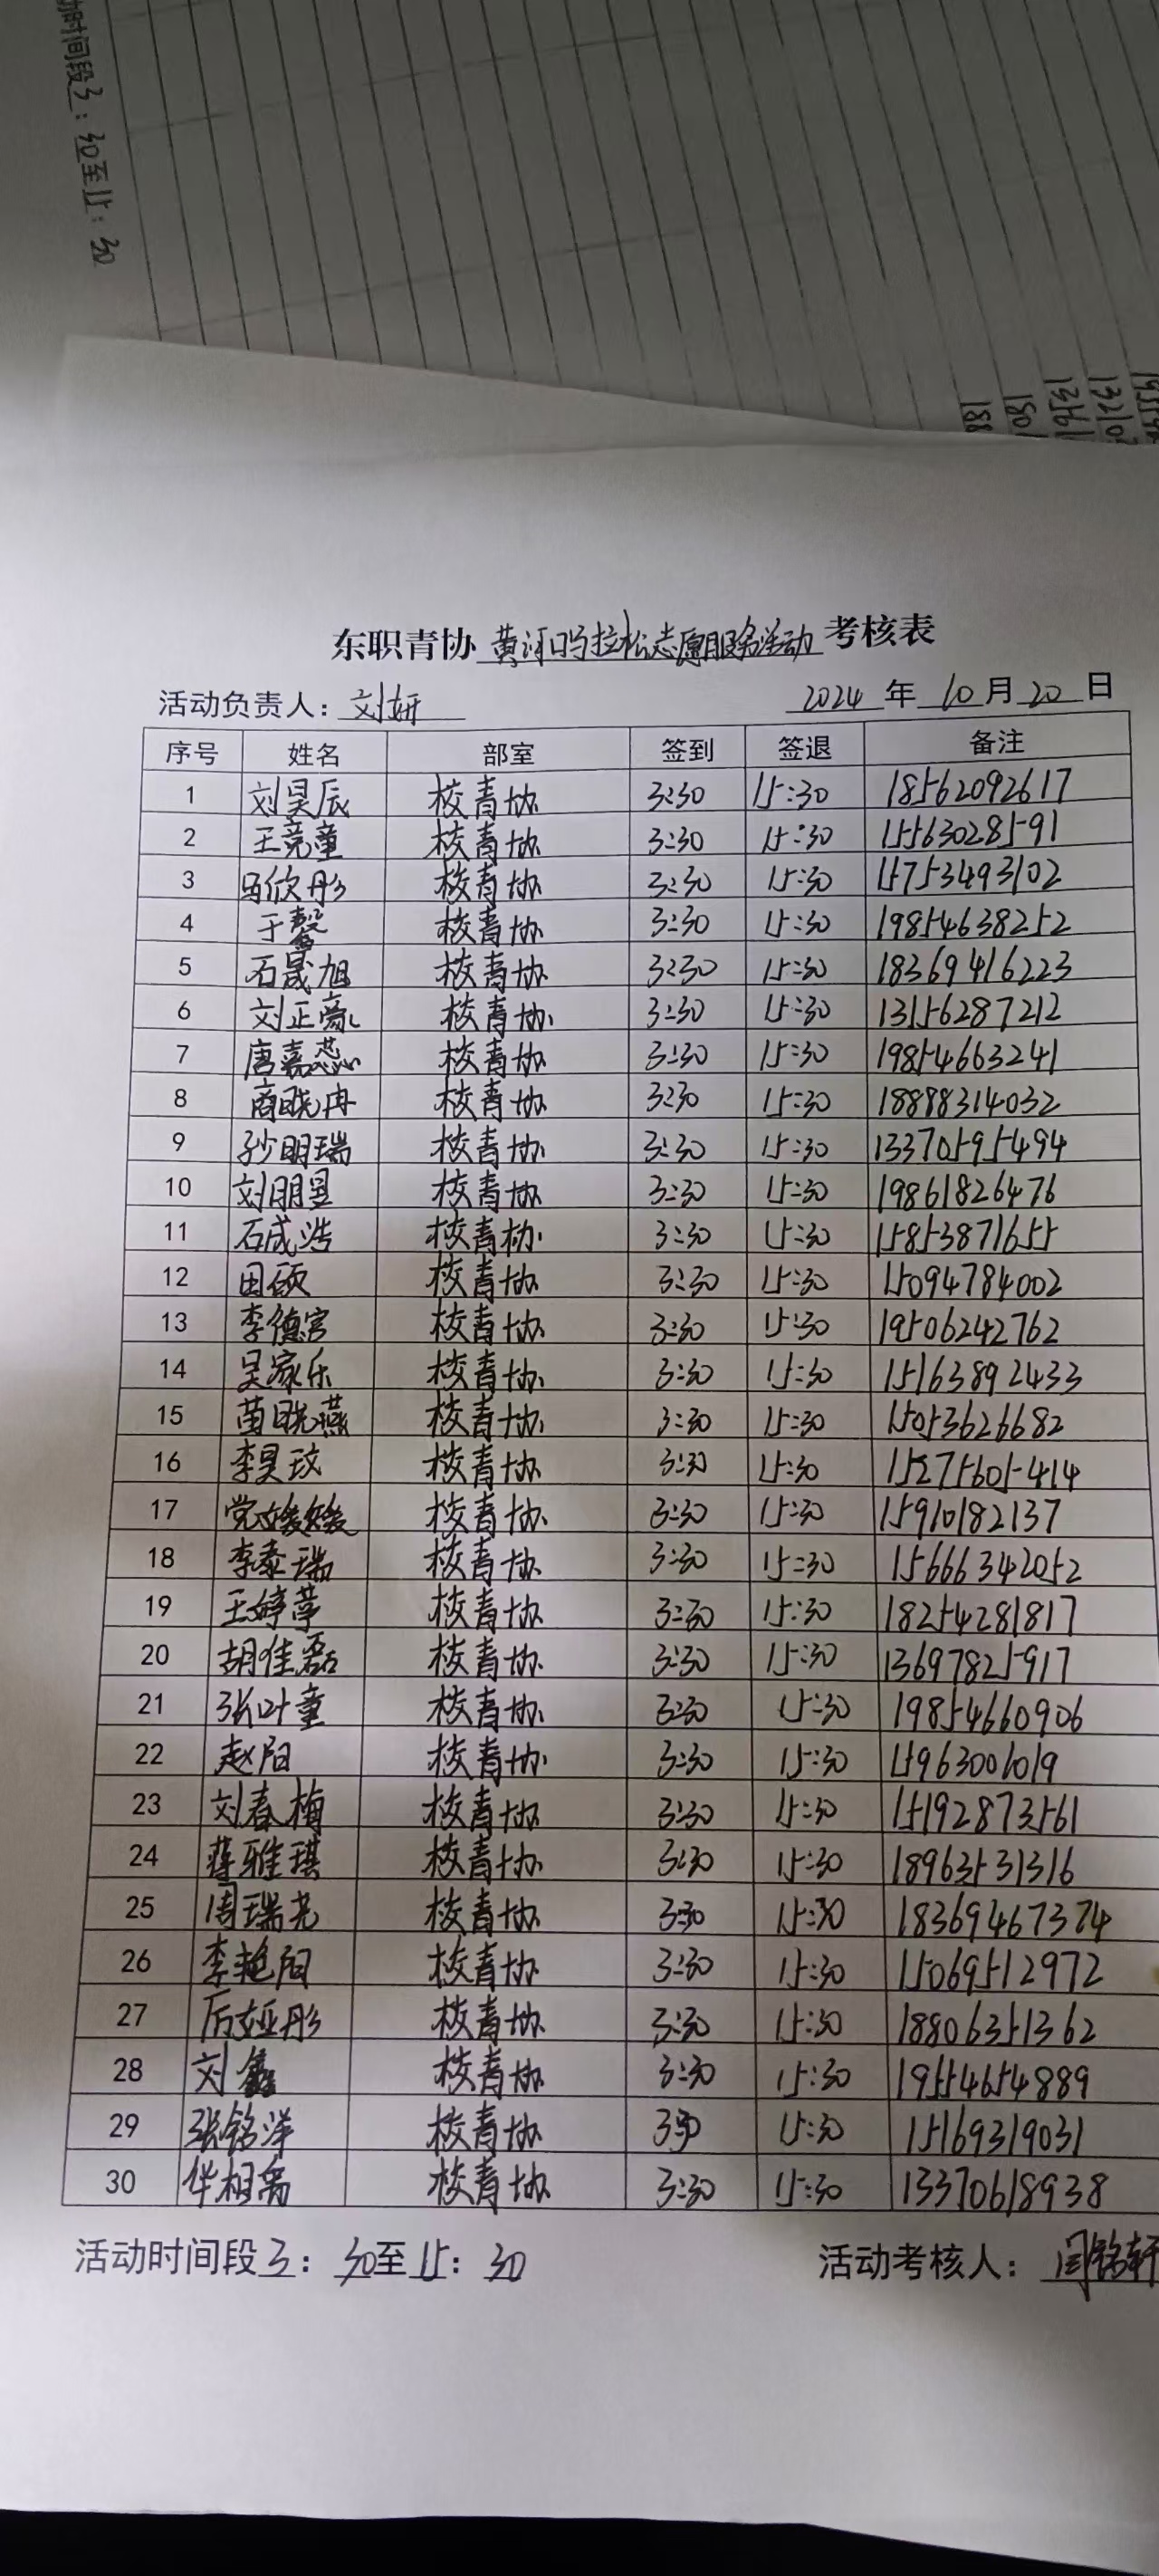 动时间段3：30至15：30
东职青协 黄河口马拉松志愿服务活动 考核表
活动负责人：刘妍 2024 年 10 月 20 日
序号 姓名 部室 签到 签退 备注
1 刘昊辰 校青协 3:30 15:30 18562092617
2 王竞童 校青协 3:30 15:30 15563028591
3 马欣彤 校青协 3:30 15:30 15753493102
4 于馨 校青协 3:30 15:30 19854638252
5 石晟旭 校青协 3:30 15:30 18369416223
6 刘正豪 校青协 3:30 15:30 13156287212
7 唐嘉蕊 校青协 3:30 15:30 19854663241
8 商晓冉 校青协 3:30 15:30 18888314032
9 孙明瑞 校青协 3:30 15:30 13370595494
10 刘朋昱 校青协 3:30 15:30 19861826476
11 石成浩 校青协 3:30 15:30 15853871655
12 田硕 校青协 3:30 15:30 15094784002
13 李德宫 校青协 3:30 15:30 19506242762
14 吴家乐 校青协 3:30 15:30 15163892433
15 苗晓燕 校青协 3:30 15:30 15053626682
16 李昊玟 校青协 3:30 15:30 15275605414
17 党媛媛 校青协 3:30 15:30 15910182137
18 李泰瑞 校青协 3:30 15:30 15666342052
19 王婷葶 校青协 3:30 15:30 18254281817
20 胡佳磊 校青协 3:30 15:30 13697825917
21 张叶童 校青协 3:30 15:30 19854660906
22 赵阳 校青协 3:30 15:30 15963006019
23 刘春梅 校青协 3:30 15:30 15192873561
24 蒋雅琪 校青协 3:30 15:30 18963531316
25 周瑞尧 校青协 3:30 15:30 18369467374
26 李艳阳 校青协 3:30 15:30 15069512972
27 厉娅彤 校青协 3:30 15:30 18806351362
28 刘鑫 校青协 3:30 15:30 19554654889
29 张铭洋 校青协 3:30 15:30 15169319031
30 华相禹 校青协 3:30 15:30 13370618938
活动时间段3：30至15：30 活动考核人：闫铭轩